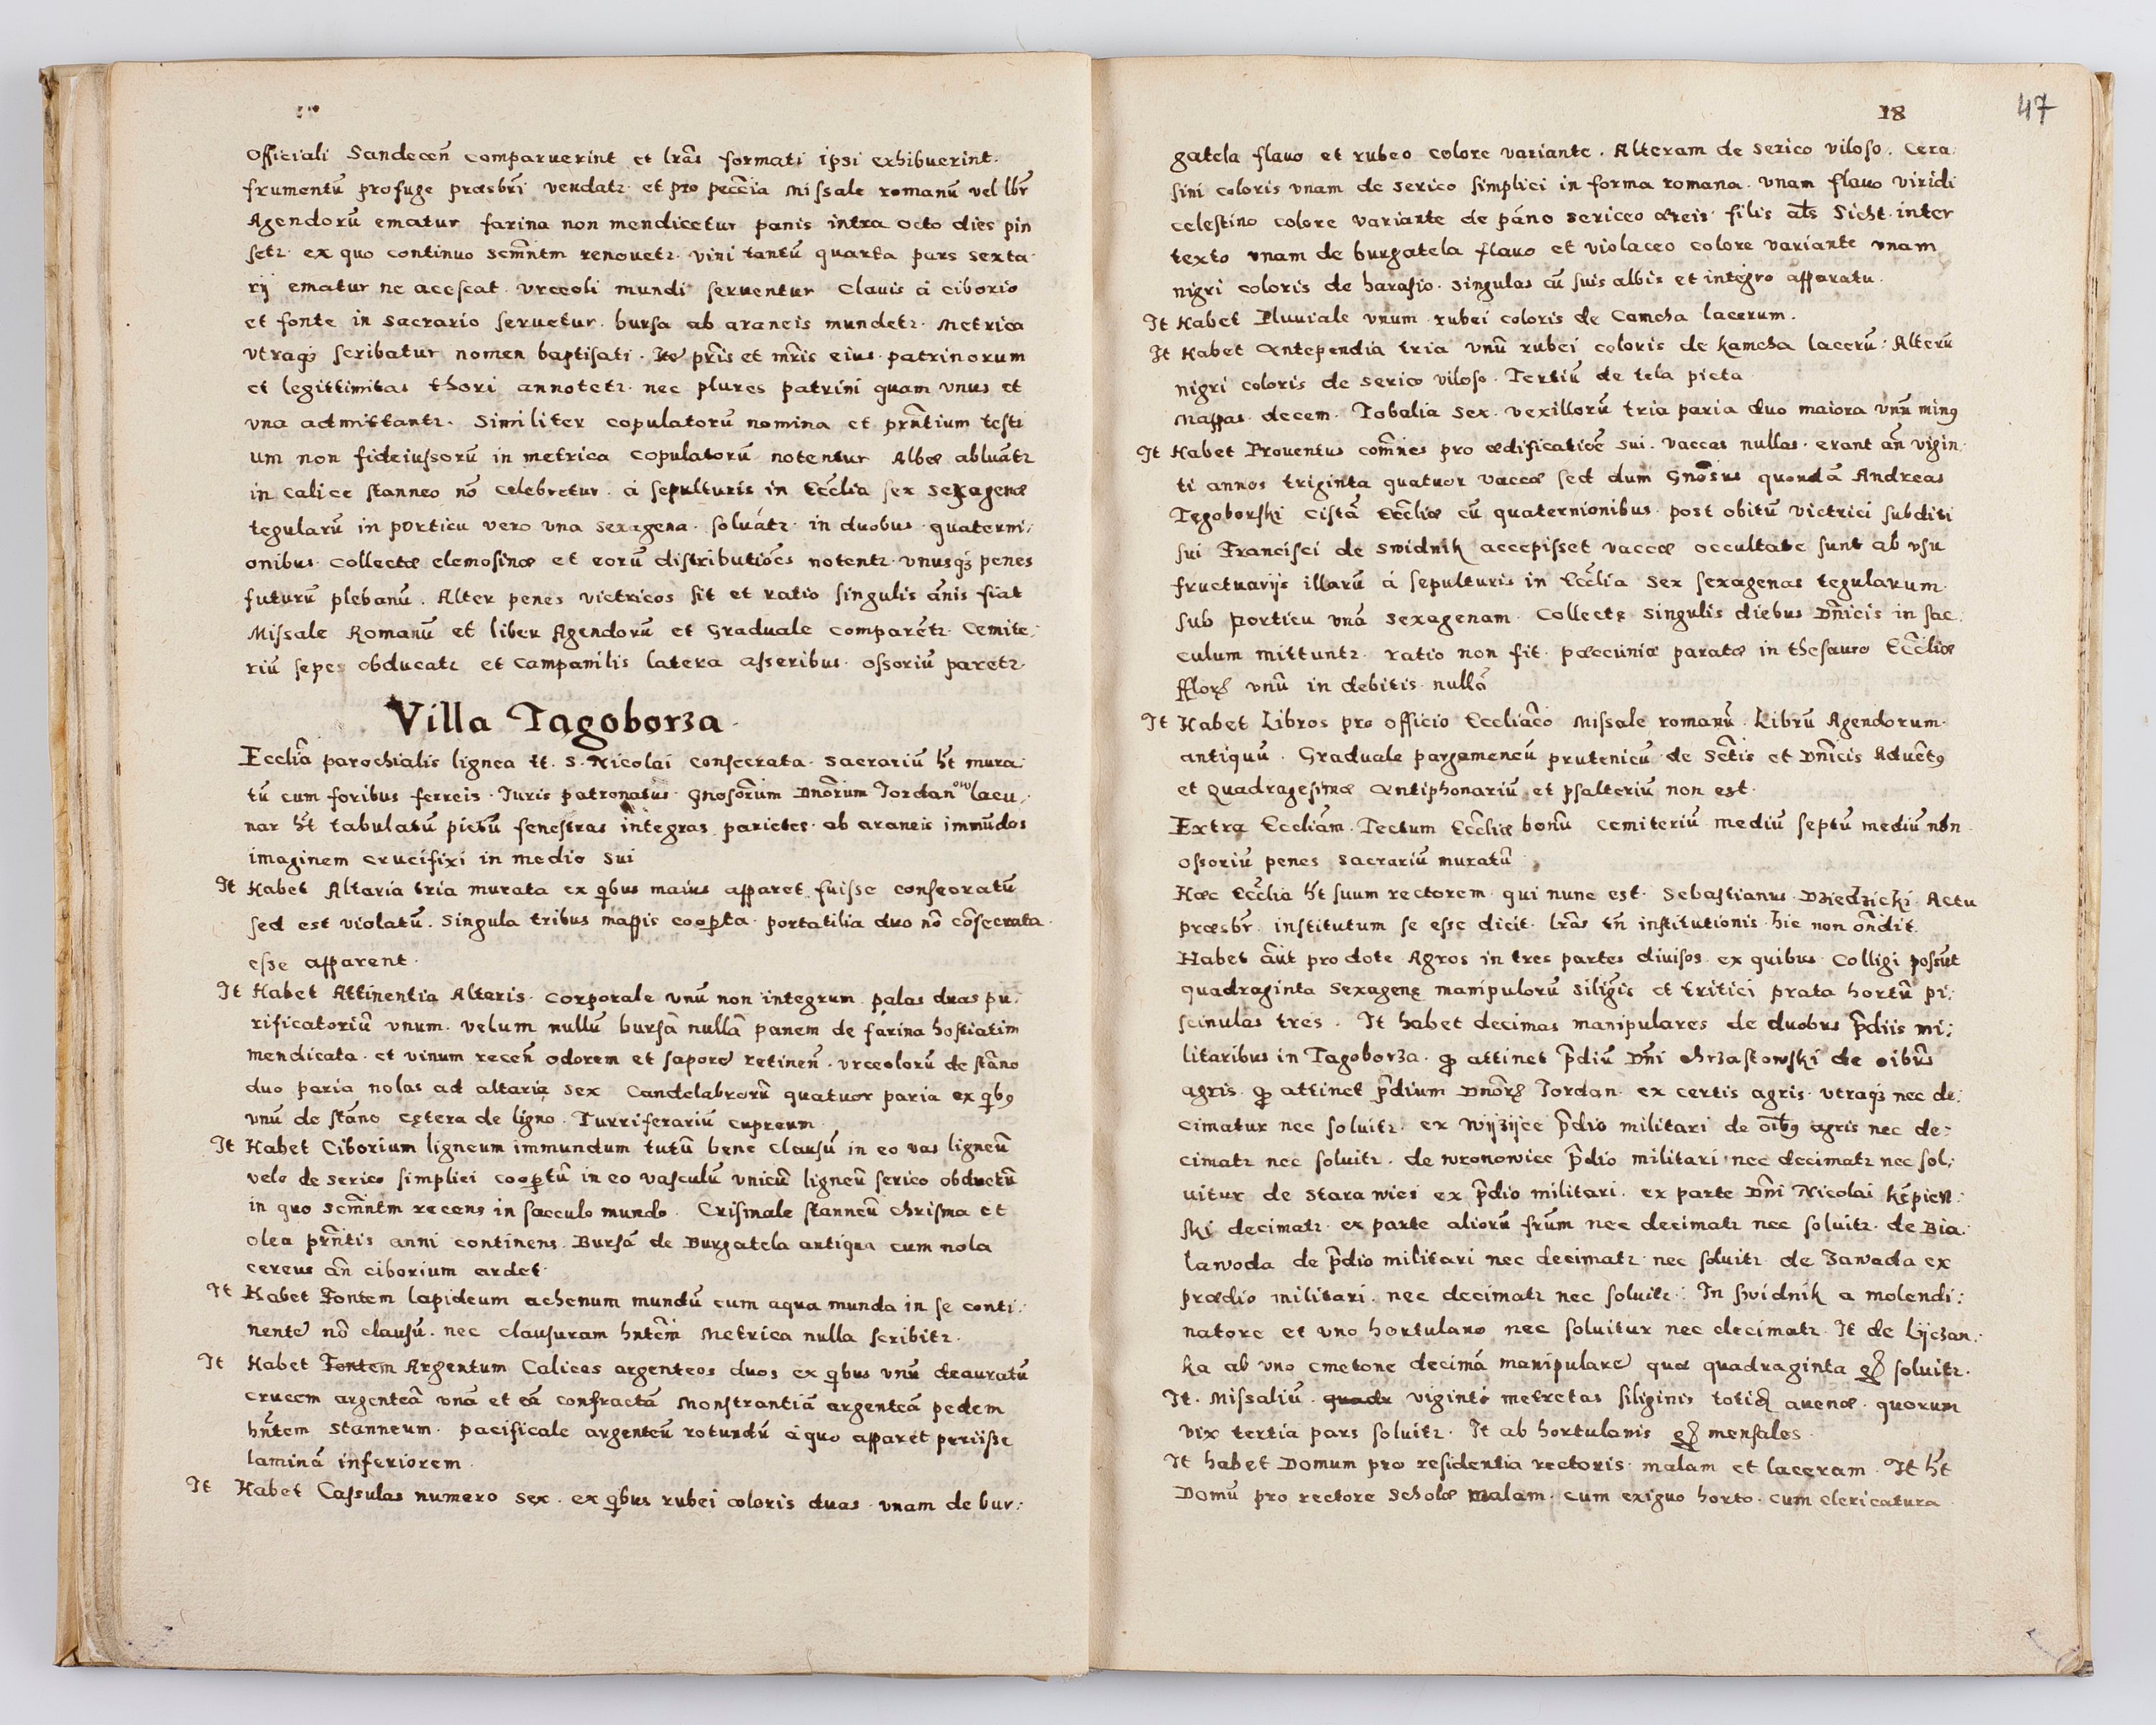 Officiali Sandeceñ comparuerint et lrãs formati ipsi exhibuerint.
frumentũ profuge præsbri vendatr et pro peccĩa Missale romanũ vel lbr̃
Agendorũ ematur farina non mendicetur panis intra octo dies pin
setr. ex quo continuo scm̃ntm renouetr. vini tantũ quarta pars sexta
rij ematur ne acescat. vrceoli mundi seruentur Clauis á ciborio
et fonte in Sacrario seruetur. bursa ab araneis mundetr. Metrica
vtraqȝ scribatur nomen baptisati. prĩs et mrĩs eius. patrinorum
et legittimitas thori annotetr. nec plures patrini quam vnus et
vna admittantr. Similiter copulatorũ nomina et prñtium testi
um non fideiussorũ in metrica copulatorũ notentur Albæ abluãtr
in calice stanneo nõ celebretur. á sepulturis in Eccĺia sex sexagenæ
tegularũ in porticu vero vna sexagena. soluátr. in duobus quaterni:
onibus. Collectæ elemosinæ et eorũ distributiões notentr. vnusqȝ penes
futurũ plebanũ. Alter penes victricos sit et ratio singulis ãnis fiat
Missale Romanũ et liber Agendorũ et Graduale comparẽtr. Cemite:
riũ sepes obducatr et Campanilis latera asseribus. ossoriũ paretr.
Villa Tagoborza.
Ecclĩa parochialis lignea tt. S. Nicolai consecrata. Sacrariũ ht̃ mura:
tũ cum foribus ferreis. Juris patronatus Gnosõrum Dnõrum Jordanow lacu:
nar ht̃ tabulatũ pictũ fenestras integras parietes. ab araneis immũdos
imaginem crucifixi in medio sui
It Habet Altaria tria murata ex qbus maius apparet fuisse conseoratũ
sed est violatũ. Singula tribus mappis coopta. portatilia duo nõ cõsecrata.
esse apparent.
It Habet Attinentia Altaris. corporale vnũ non integrum palas duas pu:
rificatoriũ vnum. velum nullũ bursã nullã panem de farina hostiatim
mendicata. et vinum receñ odorem et saporẽ retineñ. vrceolorũ de stãno
duo paria nolas ad altaria sex Candelabrorũ quatuor paria ex qbꝰ
vnũ de stãno cętera de ligno. Turriferariũ cupreum
It Habet Ciborium ligneum immundum tutũ bene clausũ in eo vas ligneũ
velo de serico simplici cooptũ in eo vasculũ vnicũ ligneũ serico obductũ
in quo scm̃ntm recens in sacculo mundo. Crismale stanneũ chrisma et
olea prñtis anni continens. Bursã de Burgatela antiqua cum nola
cereus añ ciborium ardet.
It Habet Fontem lapideum ahenum mundũ cum aqua munda in se conti:
nentẽ nõ clausũ. nec clausuram hntẽm Metrica nulla scribitr.
It Habet Fontem Argentum Calices argenteos duos ex qbus vnũ deauratũ
crucem argenteã vnã et eã confractã Monstrantiã argenteã pedem
hñtem stanneum. pacificale argenteũ rotundũ áquo apparet periisse
laminã inferiorem.
It Habet Cassulas numero sex. ex qbus rubei coloris duas. vnam de bur:
18
47
gatela flauo et rubeo colore variante. Alteram de serico viloso. Cera:
sini coloris vnam de serico simplici in forma romana. vnam flauo viridi
celestino colore variante de páno sericeo æreis filis als Sicht. inter
texto vnam de burgatela flauo et violaceo colore variante vnam
nigri coloris de harasio. Singulas cũ suis albis et integro apparatu.
It Habet Pluuiale vnum rubei coloris de Camcha lacerum.
It Habet Antependia tria vnũ rubei coloris de kamcha lacerũ: Alterũ
nigri coloris de serico viloso. Tertiũ de tela picta
Mappas decem. Tobalia sex. vexillorũ tria paria duo maiora vnũ minꝰ
It Habet Prouentus com̃nes pro ædificatiõe sui. vaccas nullas. erant añ vigin:
ti annos triginta quatuor vaccæ sed dum Gnõsus quondã Andreas
Tęgoborski cistã Ecclĩæ cũ quaternionibus post obitũ victrici subditi
sui Francisci de Swidnik accepisset vaccæ occultatæ sunt ab vsu
fructuarijs illarũ á sepulturis in Ecclĩa sex sexagenas tegularum.
sub porticu vnã sexagenam. Collectę singulis diebus Dnĩcis in sac:
culum mittuntr. ratio non fit. pæcuniæ paratæ in thesauro Ecclĩæ
fflorꝝ vnũ in debitis nullã
It Habet Libros pro officio Eccliãco Missale romanũ. Librũ Agendorum.
antiquũ. Graduale pargamencũ prutenicũ de Sctĩs et Dnĩcis Aduẽtꝰ
et Quadragesimæ Antiphonariũ et psalteriũ non est.
Extra Eccliãm. Tectum Ecclĩæ bonũ cemiteriũ mediũ septũ mediũ nõn
ossoriũ penes sacrariũ muratũ
Hæc Ecclĩa ht̃ suum rectorem qui nunc est. Sebastianus Dziedzicki. Actu
præsbr̃. institutum se esse dicit. lrãs tñ institutionis hic non oñdit.
Habet ãut pro dote Agros in tres partes diuisos ex quibus Colligi possũt
quadraginta sexagenę manipulorũ siliginis et tritici prata hortũ pi:
scinulas tres. It habet decimas manipulares de duobus p̃diis mi:
litaribus in Tagoborza. ꝙ attinet p̃diũ Dñi Chrzastowski de oibũs
agris. ꝙ attinet p̃dium Dnõrꝝ Jordan ex certis agris. vtraqȝ nec de:
cimatur nec soluitr. ex Wijzijce p̃dio militari de oibꝰ agris nec de:
cimatr nec soluitr. de Wronowice p̃dio militari nec decimatr nec sol:
uitur de Stara wies ex p̃dio militari. ex parte Dñi Nicolai Kẽpien:
ski decimatr. ex parte aliorũ frũm nec decimatr nec soluitr. de Bia:
lawoda de p̃dio militari nec decimatr nec soluitr de Zawada ex
prædio militari. nec decimatr nec soluitr. In Swidnik a molendi:
natore et vno hortulano nec soluitur nec decimatr. It de Lijczan:
ka ab vno cmetone decimã manipularẽ quæ quadraginta gꝝ soluitr.
It. Missaliũ. quadr viginti metretas siliginis totiḍ auenæ. quorum
vix tertia pars soluitr. It ab hortulanis gꝝ mensales.
It habet Domum pro residentia rectoris malam et laceram. It ht̃
Domũ pro rectore scholæ malam. cum exiguo horto. cum clericatura